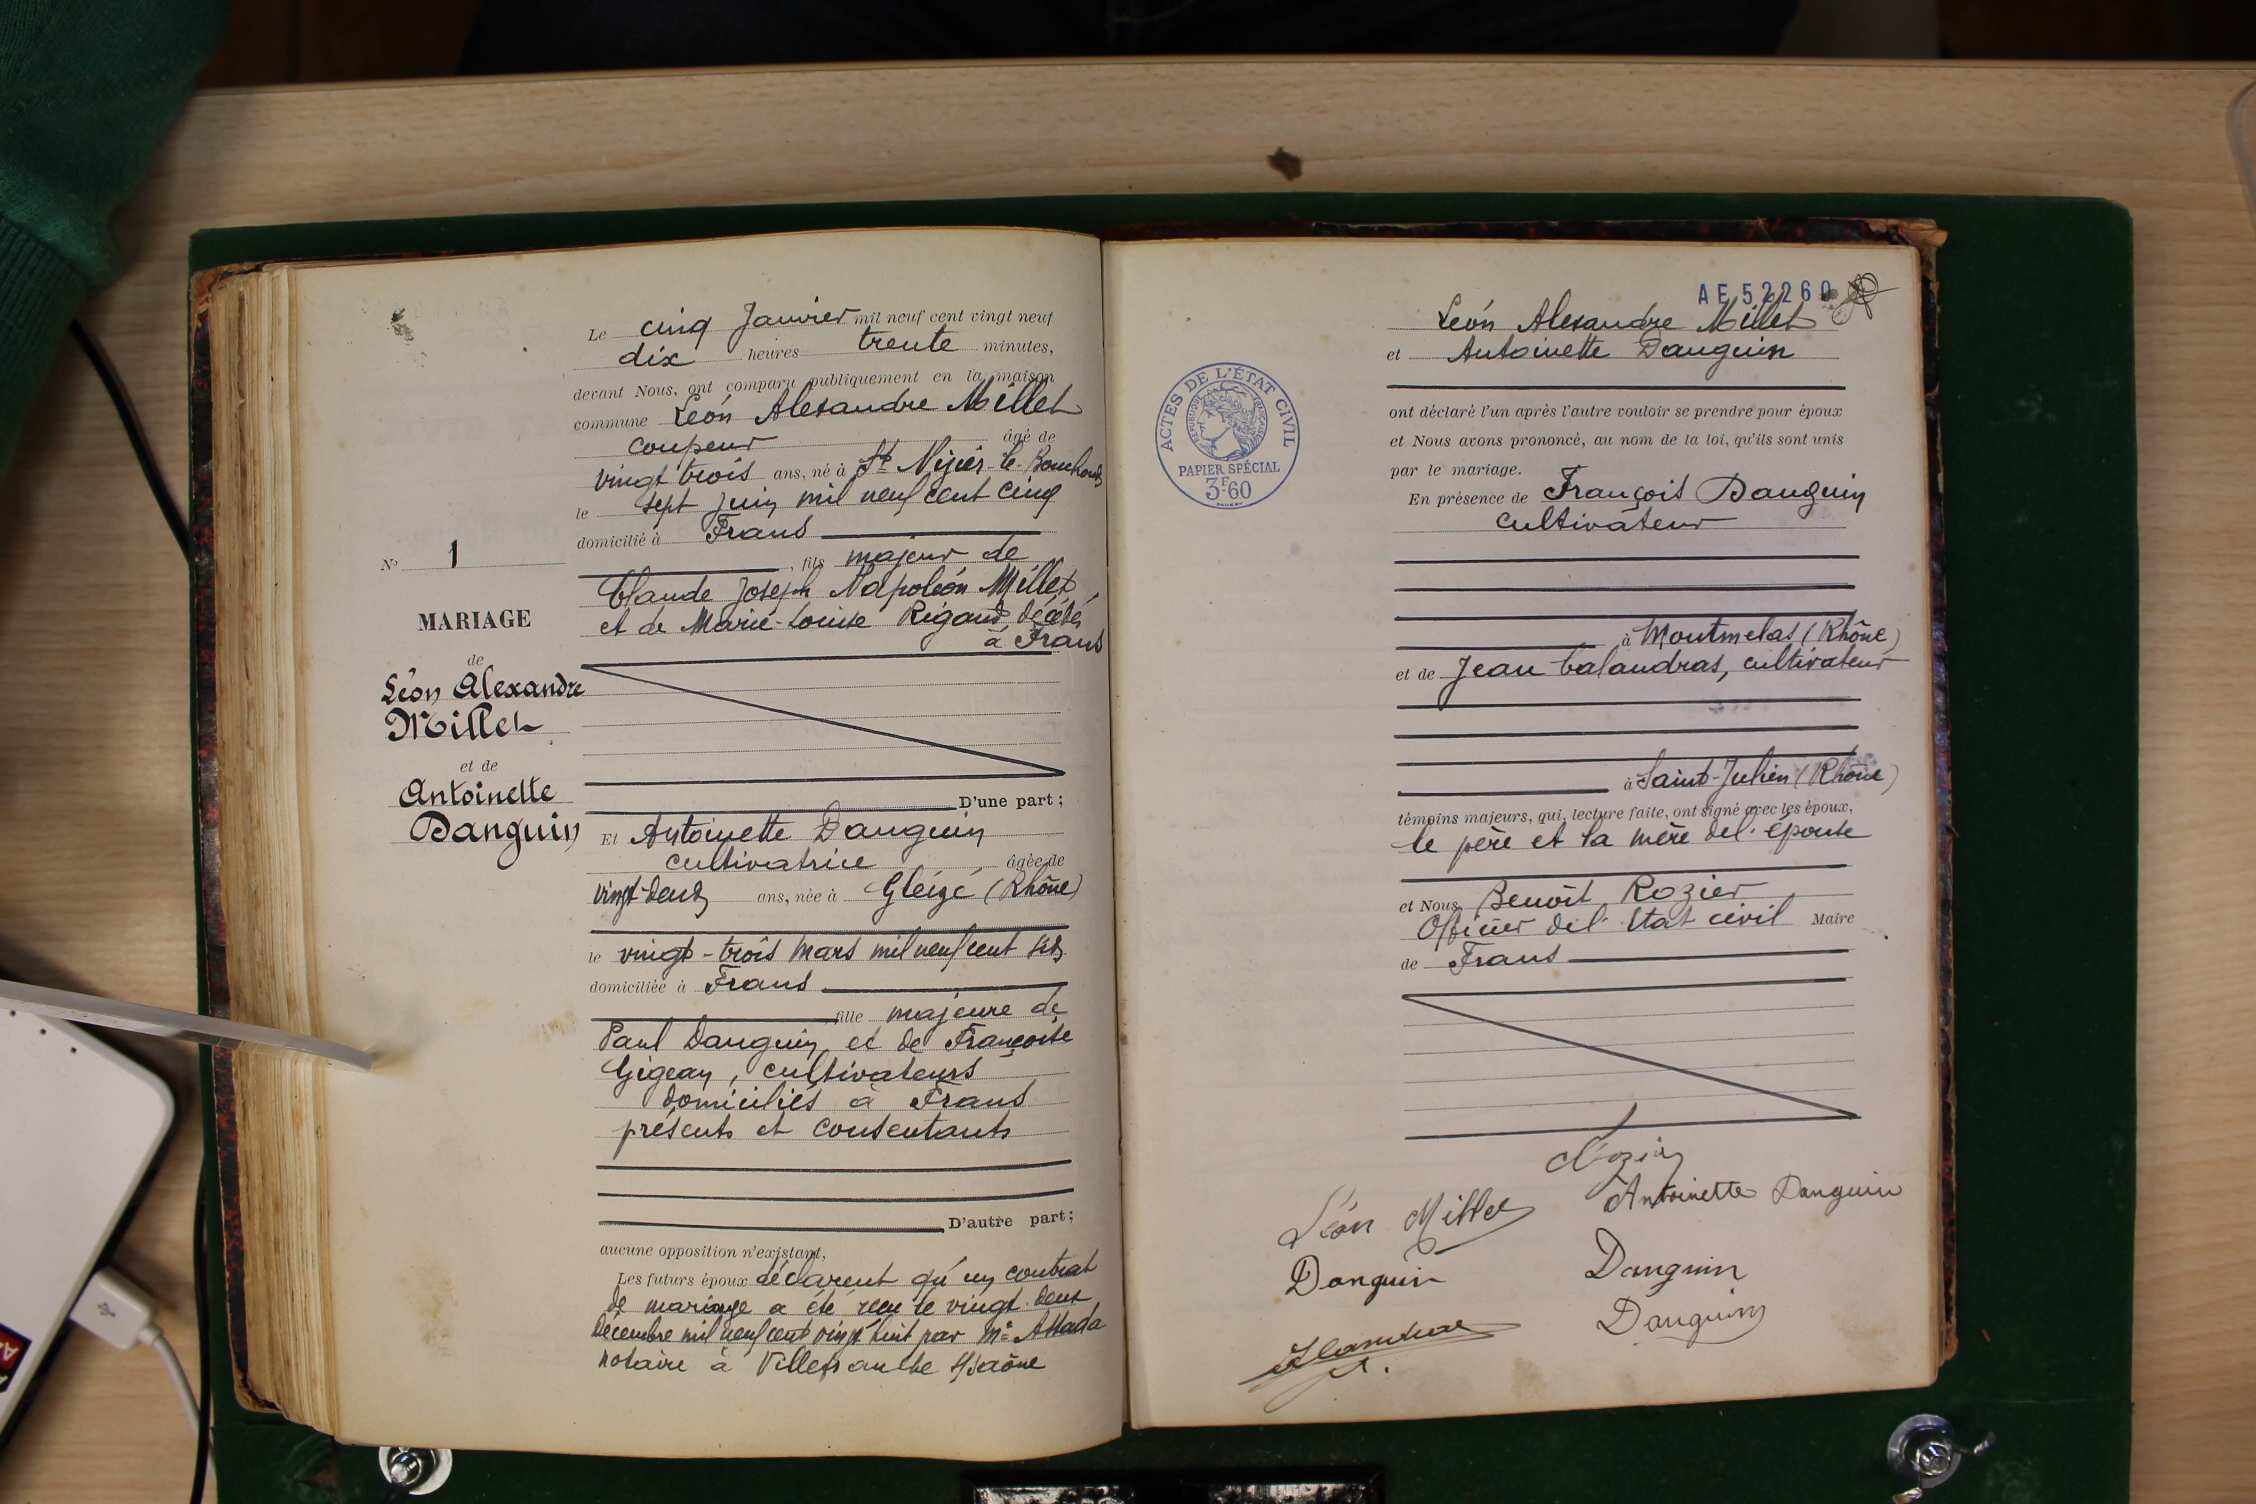 Le cinq Janvier mil neuf cent vingt neuf
dix heures trente minutes,
devant Nous, ont comparu publiquement en la maison
commune Léon Alexandre Millet
coupeur âgé de
vingt trois ans, né à St Nizier-le-Bouchoux
le sept Juin mil neuf cent cinq
domicilié à Frans
, fils majeur de
Claude Joseph Napoléon Millet,
et de Marie-Louise Rigaud, décédés
à Frans
D'une part;
Et Antoinette Danguin
cultivatrice âgée de
vingt-deux ans, née à Gleizé (Rhône)
le vingt-trois Mars mil neuf cent six
domiciliée à Frans
fille majeure de
Paul Danguin et de Françoise
Gigean, cultivateurs
domiciliés à Frans
présents et consentants
D'autre part;
aucune opposition n'existant,
Les futurs époux déclarent qu'un contrat
de mariage a été reçu le vingt-deux
Décembre mil neuf cent vingt huit par Me
notaire à Villefranche s/saône
No 1
MARIAGE
de
Léon Alexandre
Millet
et de
Antoinette
Danguin
AE52260
Léon Alexandre Millet
et Antoinette Danguin
ACTES DE L'ÉTAT CIVIL
RÉPUBLIQUE FRANÇAISE
PAPIER SPÉCIAL
3F60
ont déclaré l'un après l'autre vouloir se prendre pour époux
et Nous avons prononcé, au nom de la loi, qu'ils sont unis
par le mariage.
En présence de François Danguin
cultivateur
à Montmelas (Rhône)
et de Jean Calandras, cultivateur
à Saint-Julien (Rhône)
témoins majeurs, qui, lecture faite, ont signé avec les époux,
le père et la mère de l'épouse
et Nous Benoît Rozier
Officier de l'Etat civil Maire
de Frans
Rozier
Léon Millet Antoinette Danguin
Danguin Danguin
Danguin